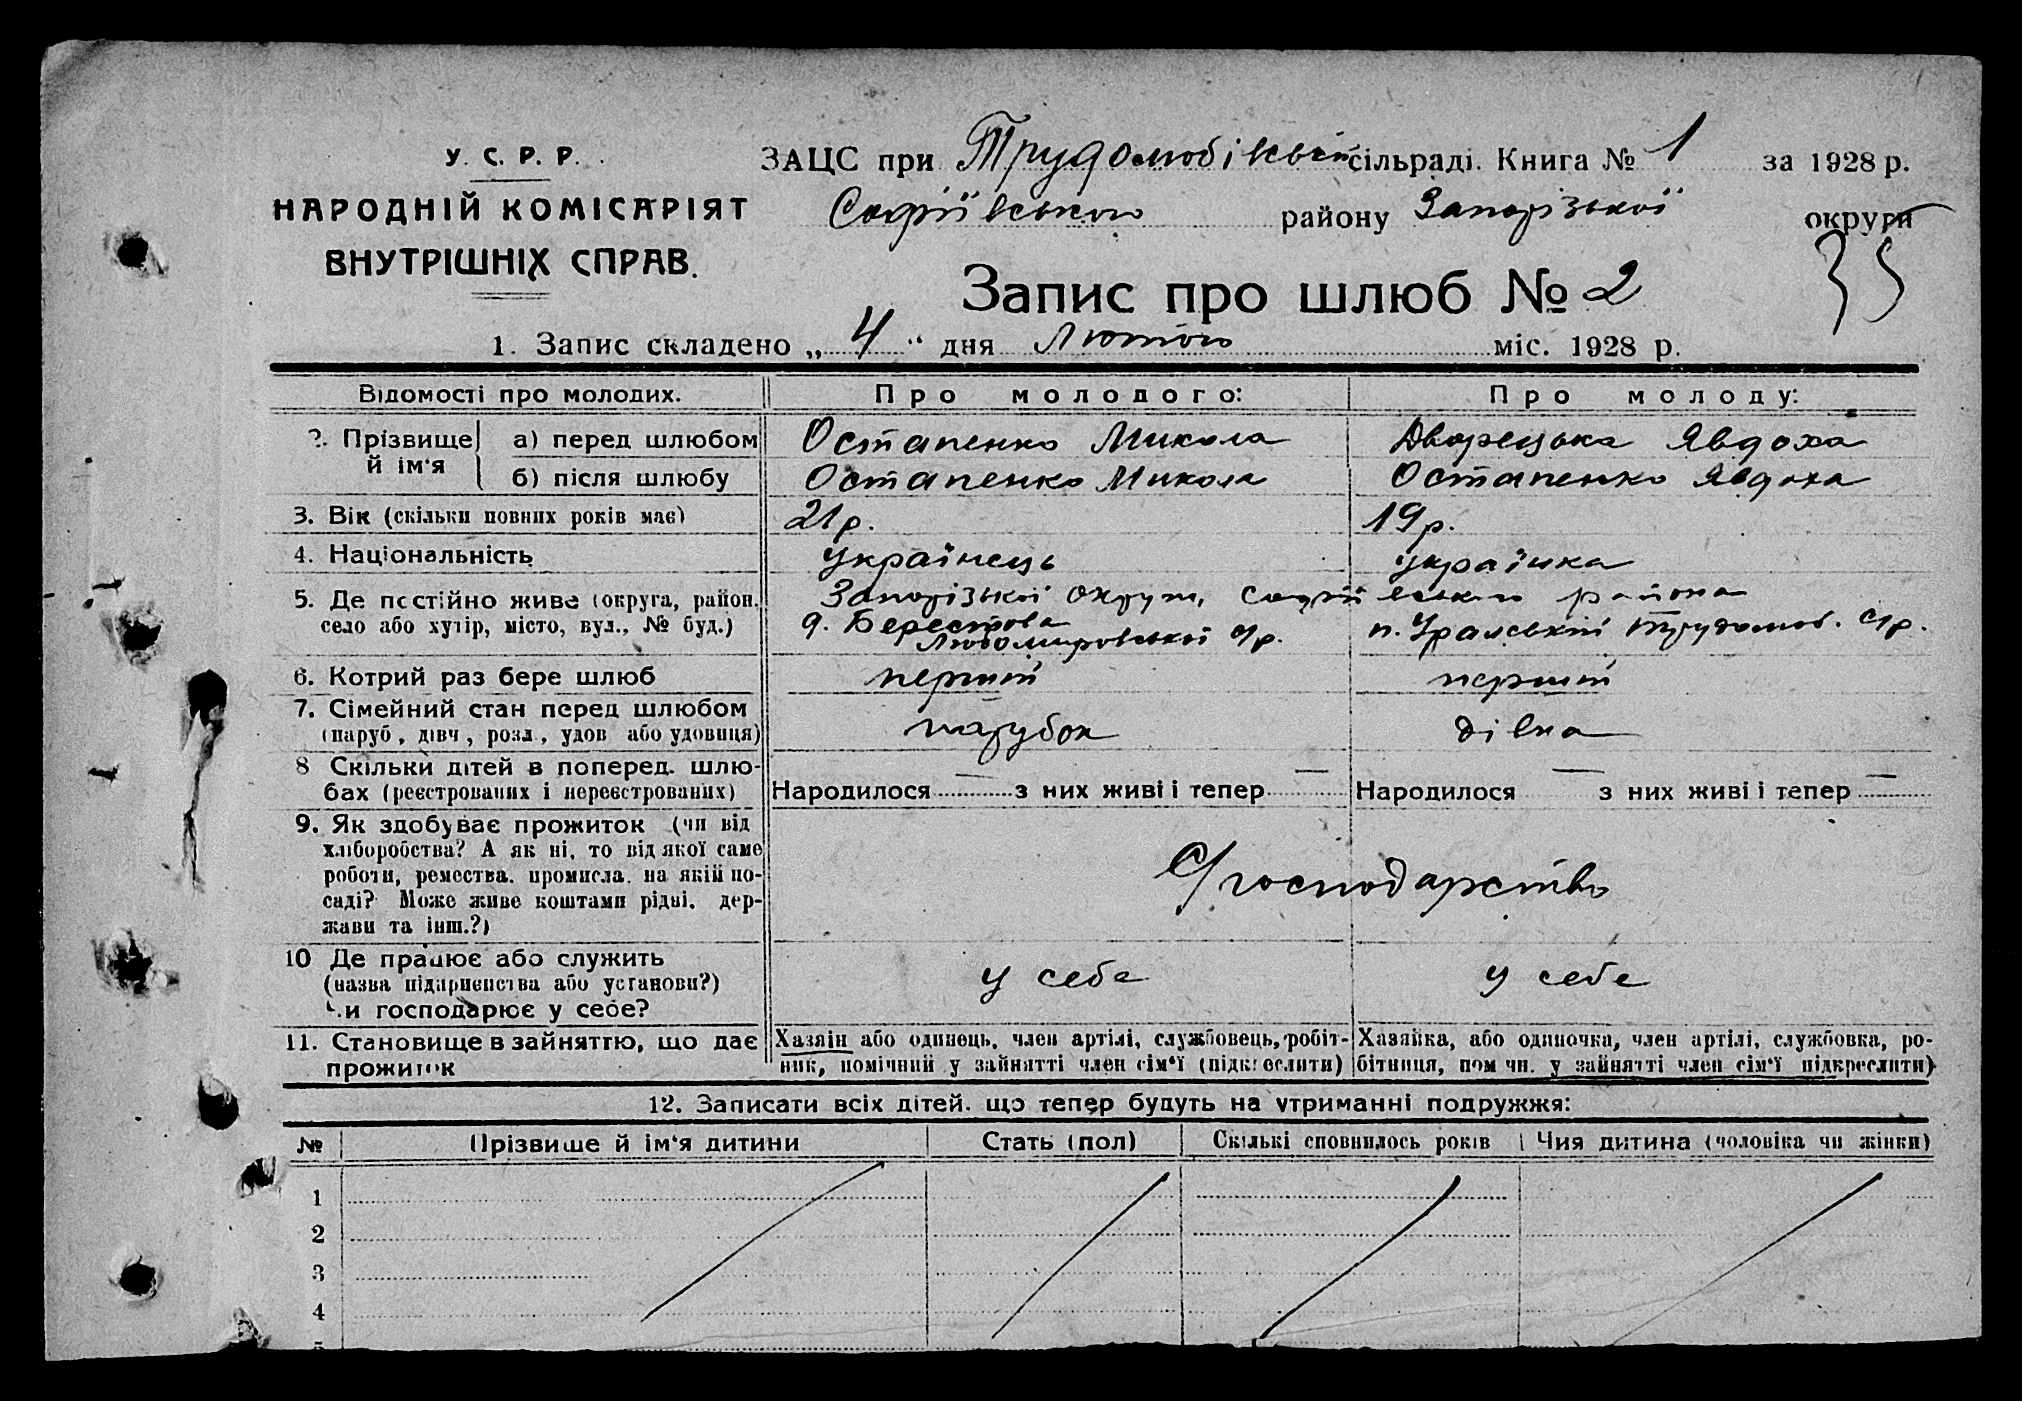 У. С. Р. Р.
НАРОДНІЙ КОМІСАРІЯТ
ВНУТРІШНІХ СПРАВ.
ЗАЦС при Трудолюбівській сільраді. Книга № 1 за 1928 р.
Софіївського району Запорізької округи
35
Запис про шлюб № 2
1. Запис складено „ 4 “ дня Лютого міс. 1928 р.
Відомості про молодих. Про молодого: Про молоду:
2. Прізвище й ім‘я
а) перед шлюбом Остапенко Микола Дворецька Явдоха
б) після шлюбу Остапенко Микола Остапенко Явдоха
3. Вік (скільки повних років має) 21 р. 19 р.
4. Національність українець українка
5. Де постійно живе (округа, район, Запорізької округи, Софіївського района
село або хутір, місто, вул., № буд.) Берестова п. Уральський Трудолюб. с/р.
Любомировської с/р.
6. Котрий раз бере шлюб перший перший
7. Сімейний стан перед шлюбом
(паруб., дівч., розл., удов або удовиця) парубок дівка
8 Скільки дітей в поперед. шлю-
бах (реєстрованих і нереєстрованих) Народилося — з них живі і тепер — Народилося — з них живі і тепер —
9. Як здобуває прожиток (чи від
хліборобства? А як ні, то від якої саме
роботи, ремества, промисла, на якій по-
саді? Може живе коштами рідні, дер-
жави та інш.?)
С/господарство
10 Де працює або служить
(назва підприємства або установи?)
Чи господарює у себе?
у себе у себе
11. Становище в зайняттю, що дає
прожиток
Хазяін або одинець, член артілі, службовець, робіт-
ник, помічний у зайнятті член сім‘ї (підкреслити)
Хазяйка, або одиночка, член артілі, службовка, ро-
бітниця, помічн. у зайнятті член сім‘ї підкреслити)
12. Записати всіх дітей, що тепер будуть на утриманні подружжя:
№ Прізвище й ім‘я дитини Стать (пол) Скількі сповнилось років Чия дитина (чоловіка чи жінки)
1
2
3
4
5